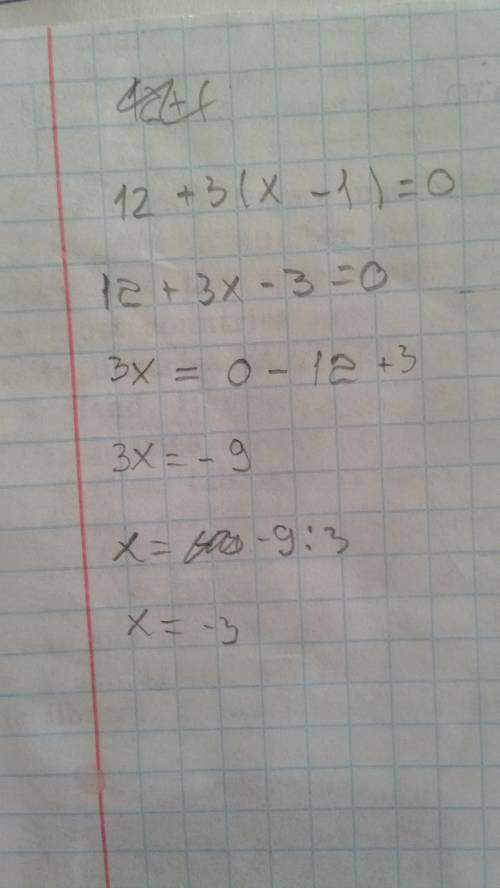 12 + 3(x - 1) = 0
12 + 3x - 3 = 0
3x = 0 - 12 + 3
3x = - 9
x = -9 : 3
x = -3